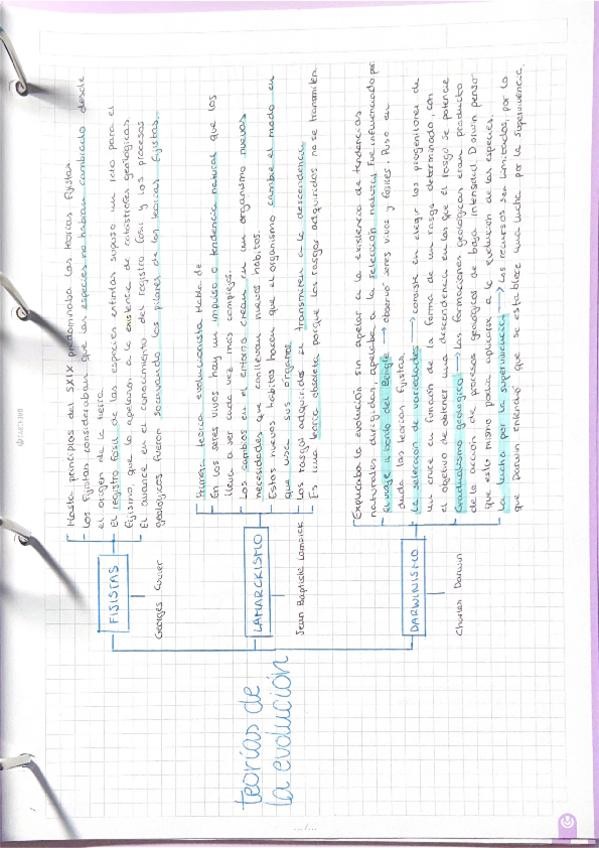 teorías de
la evolución
FIJISTAS
Georges Cuvier
Hasta principios del SXIX predominaba las teorías fijistas
Los fijistas consideraban que las especies no habían cambiado desde
el origen de la tierra.
El registro fósil de las especies extintas supuso un reto para el
fijismo, que lo apelaron a la existencia de catástrofes geológicas
El avance en el conocimiento del registro fósil y los procesos
geológicos fueron socavando los pilares de las teorías fijistas.
LAMARCKISMO
Jean Baptiste Lamarck
Primera teoría evolucionista. Habla de
En los seres vivos hay un impulso o tendencia natural que los
lleva a ser cada vez más complejos.
Los cambios en el entorno crean en un organismo nuevas
necesidades que conllevan nuevos hábitos.
Estos nuevos hábitos hacen que el organismo cambie el modo en
que usa sus órganos
Los rasgos adquiridos se transmiten a la descendencia
Es una teoría obsoleta porque los rasgos adquiridos no se transmiten.
DARWINISMO
Charles Darwin
Explicaba la evolución sin apelar a la existencia de tendencias
naturales dirigidas, apelaba a la selección natural. Fue influenciado por:
El viaje a bordo del Beagle → observó seres vivos y fósiles. Puso en
duda las teorías fijistas.
La selección de variedades → consiste en elegir los progenitores de
un cruce en función de la forma de un rasgo determinado, con
el objetivo de obtener una descendencia en las que el rasgo se potencie
Gradualismo geológico → las formaciones geológicas eran producto
de la acción de procesos geológicos de baja intensidad. Darwin pensó
que esto mismo podía aplicarse a la evolución de las especies.
La lucha por la supervivencia → los recursos son limitados, por lo
que Darwin entendió que se establece una lucha por la supervivencia.